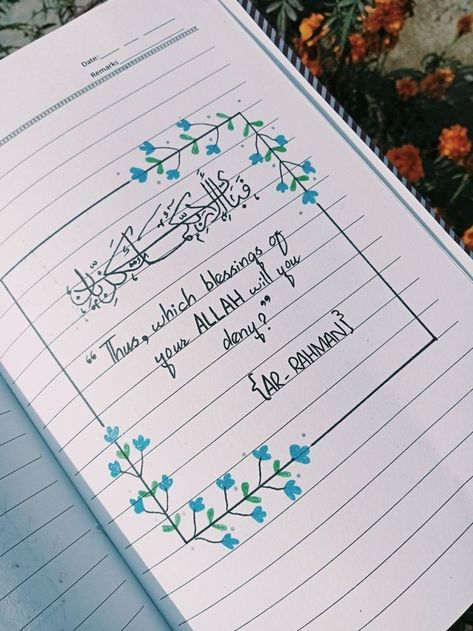 Date:
Remarks
فَبِأَيِّ آلَاءِ رَبِّكُمَا تُكَذِّبَانِ
“Thus, which blessings of
your ALLAH will you
deny?”
{AR_RAHMAN}